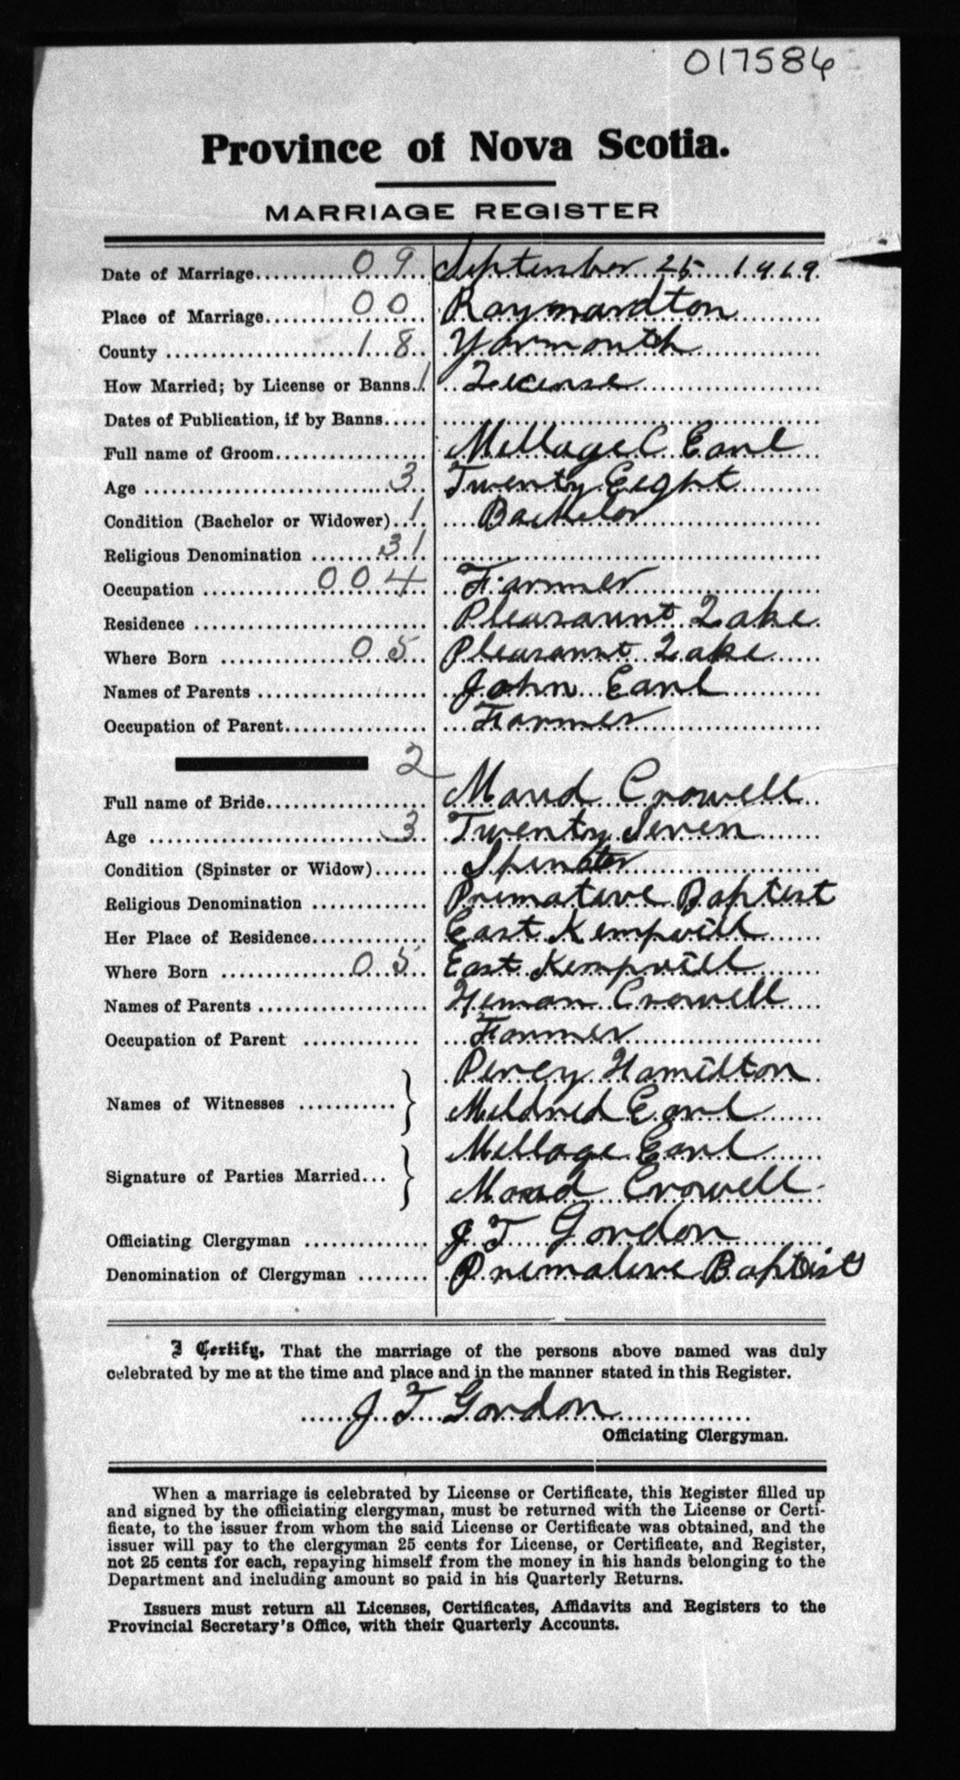 017586
Province of Nova Scotia.
MARRIAGE REGISTER
Date of Marriage............0 9. September 25 1919.
Place of Marriage...........0 0. Raymardton
County ...................1 8. Yarmouth
How Married; by License or Banns.1 License
Dates of Publication, if by Banns.....
Full name of Groom................. Mellage C Earl
Age ..........................3.. Twenty Eeght
Condition (Bachelor or Widower)..1. Bachelor
Religious Denomination .......31
Occupation ............0 0 4 Farmer
Residence ....................... Pleasaunt Lake
Where Born .............0 5.. Pleasaunt Lake
Names of Parents ................. John Earl
Occupation of Parent............... Farmer
2
Full name of Bride.................. Maud Crowell
Age ..........................3 Twenty Seven
Condition (Spinster or Widow)...... Spinster
Religious Denomination ............ Premative Baptist
Her Place of Residence............. East Kempvill
Where Born .............0 5.. East Kempvill
Names of Parents .................. Heman Crowell
Occupation of Parent ............. Farmer
Percy Hamilton
Names of Witnesses ........... } Mildred Earl
Mellage Earl
Signature of Parties Married... } Maud Crowell
Officiating Clergyman ............. J T Gordon
Denomination of Clergyman ........ Premative Baptist
I Certify, That the marriage of the persons above named was duly
celebrated by me at the time and place and in the manner stated in this Register.
J T Gordon
Officiating Clergyman.
When a marriage is celebrated by License or Certificate, this Register filled up
and signed by the officiating clergyman, must be returned with the License or Certi-
ficate, to the issuer from whom the said License or Certificate was obtained, and the
issuer will pay to the clergyman 25 cents for License, or Certificate, and Register,
not 25 cents for each, repaying himself from the money in his hands belonging to the
Department and including amount so paid in his Quarterly Returns.
Issuers must return all Licenses, Certificates, Affidavits and Registers to the
Provincial Secretary's Office, with their Quarterly Accounts.